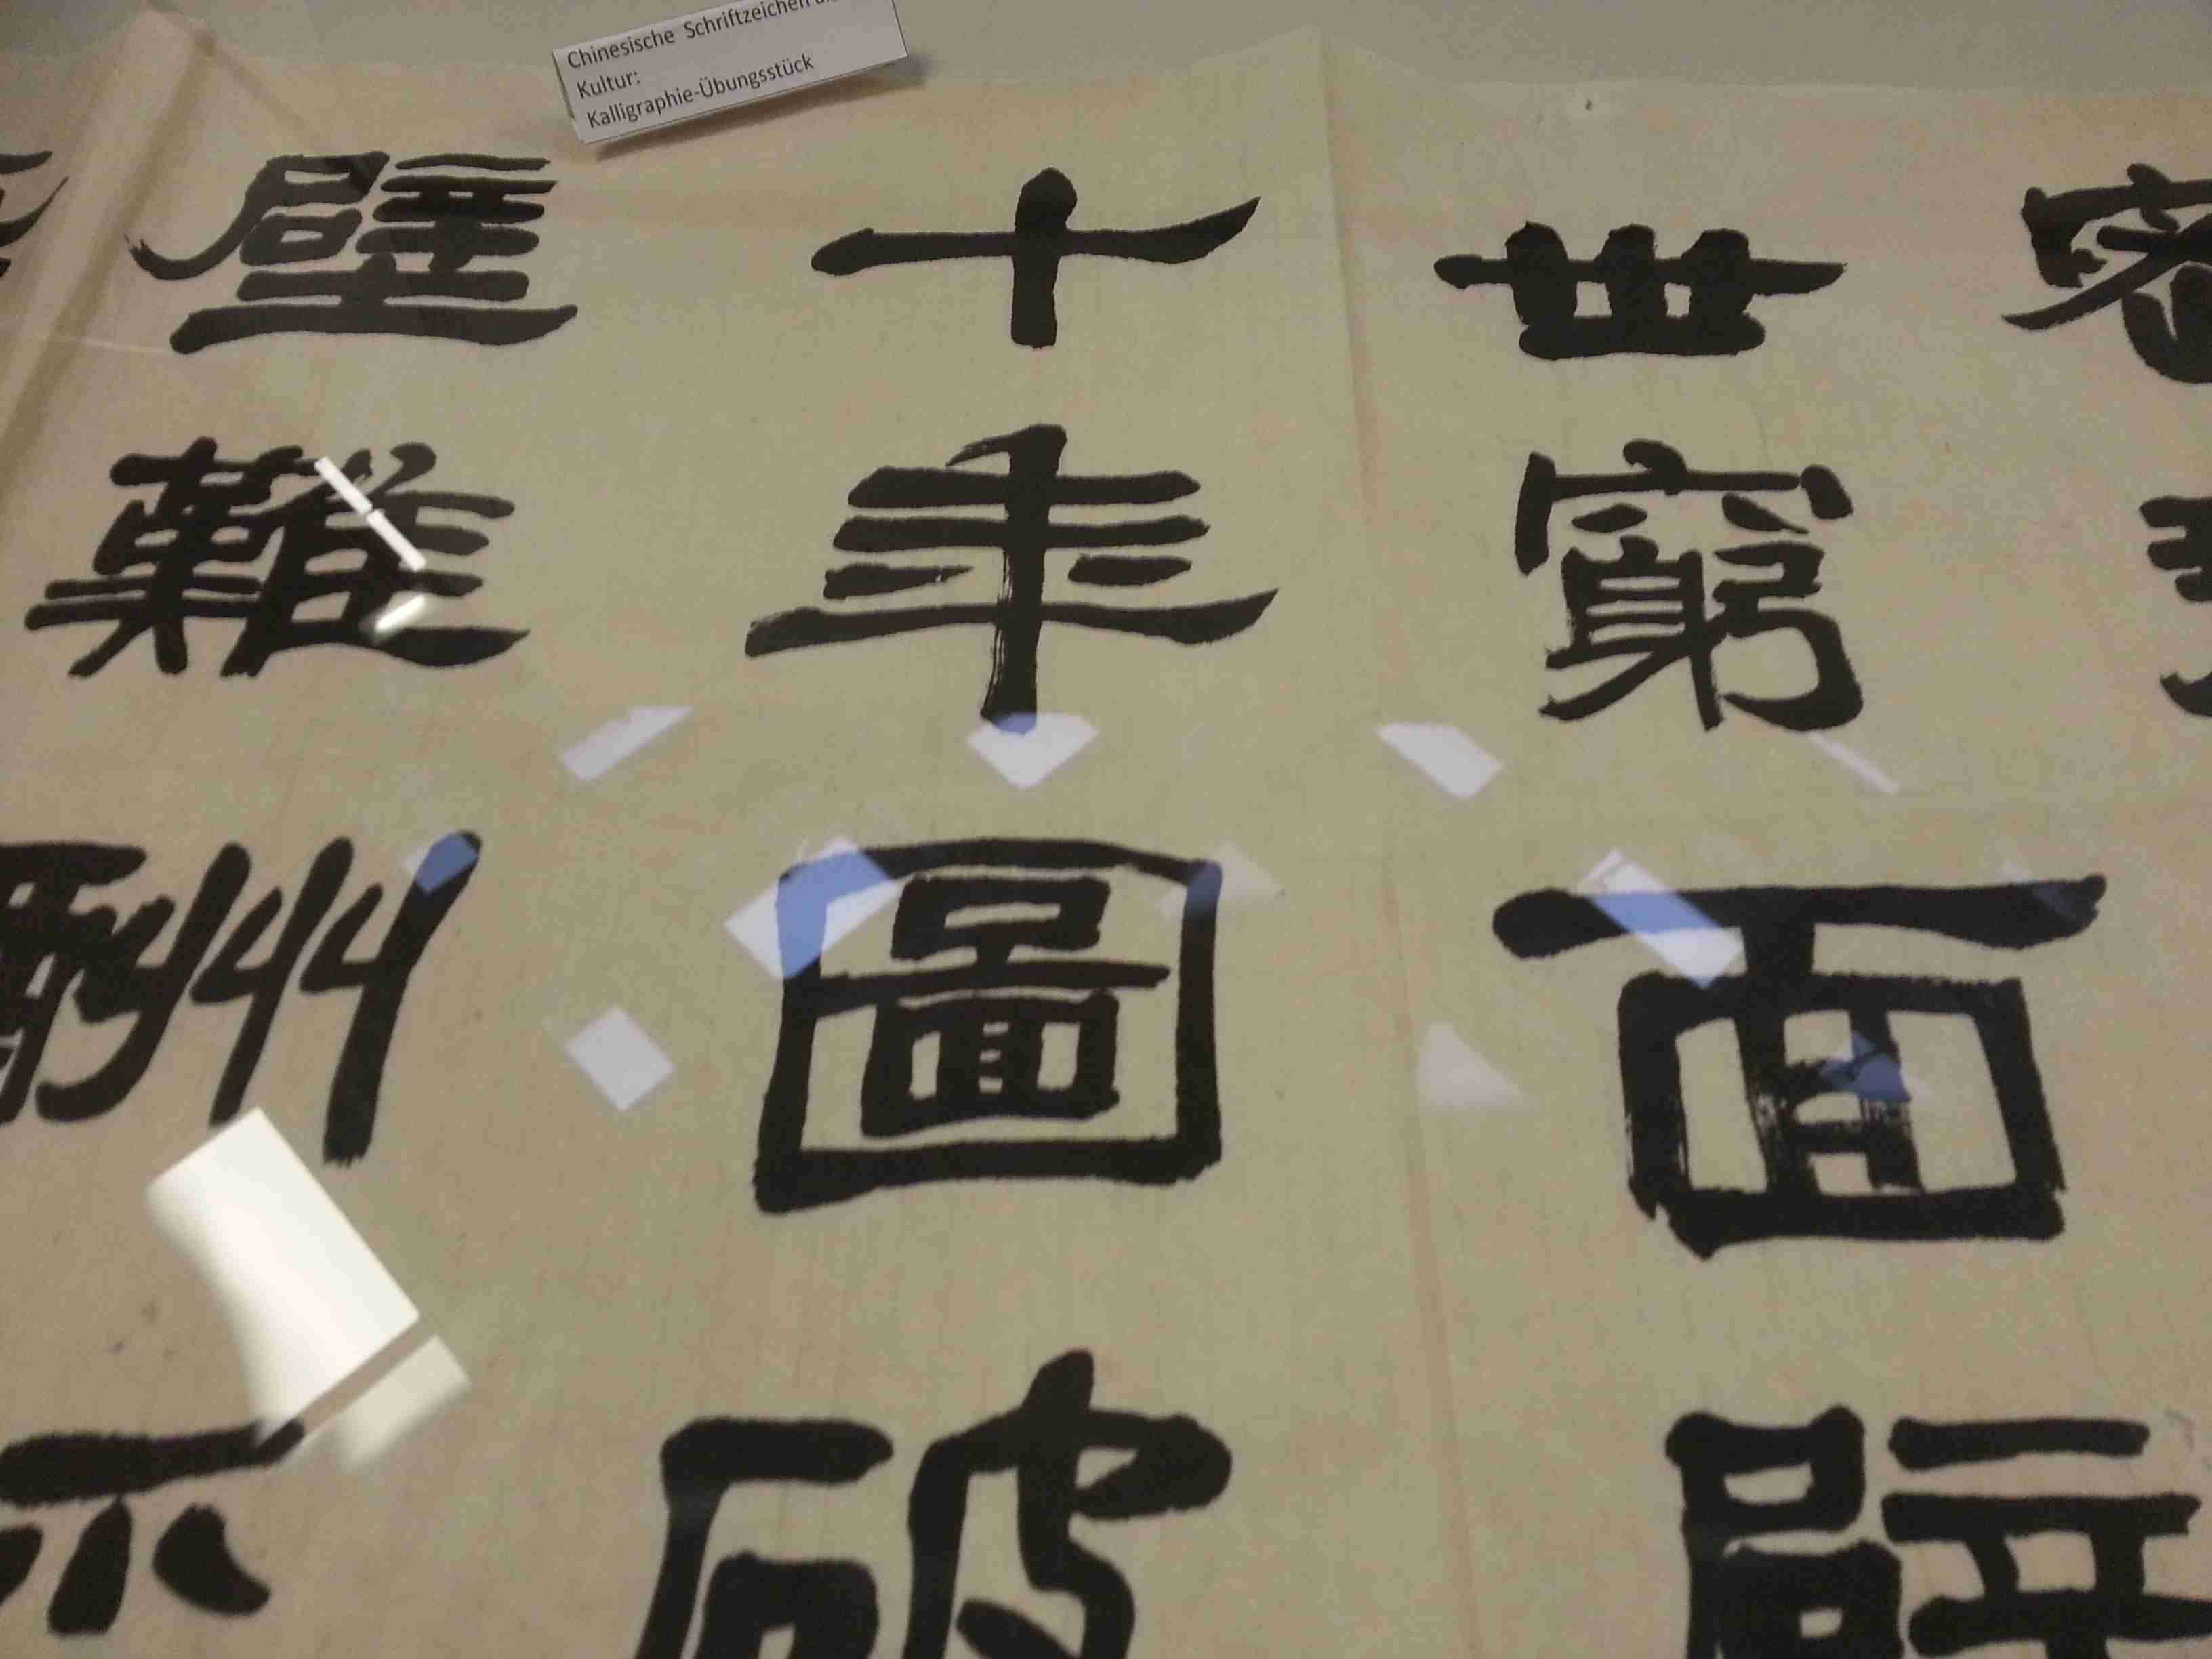 Chinesische Schriftzeichen
Kultur:
Kalligraphie-Übungsstück
密
世窮面壁
十年圖破
壁難酬